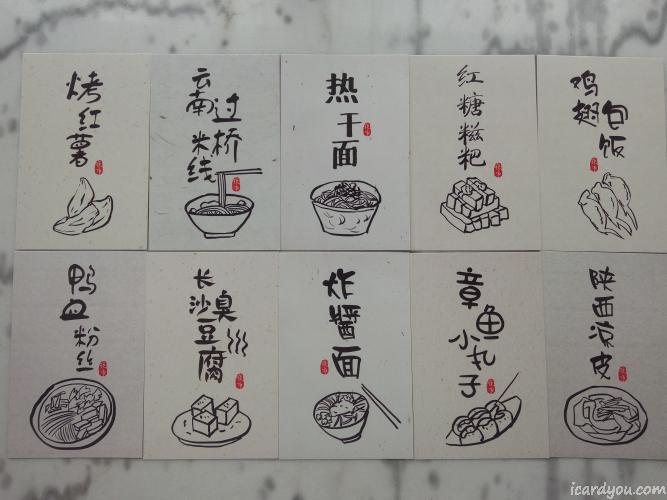 烤红薯
云南
过桥
米线
热干面
红糖糍粑
鸡翅
包饭
鸭血粉丝
长沙
臭
豆腐
炸醬面
章鱼小丸子
陕西凉皮
icardyou.com